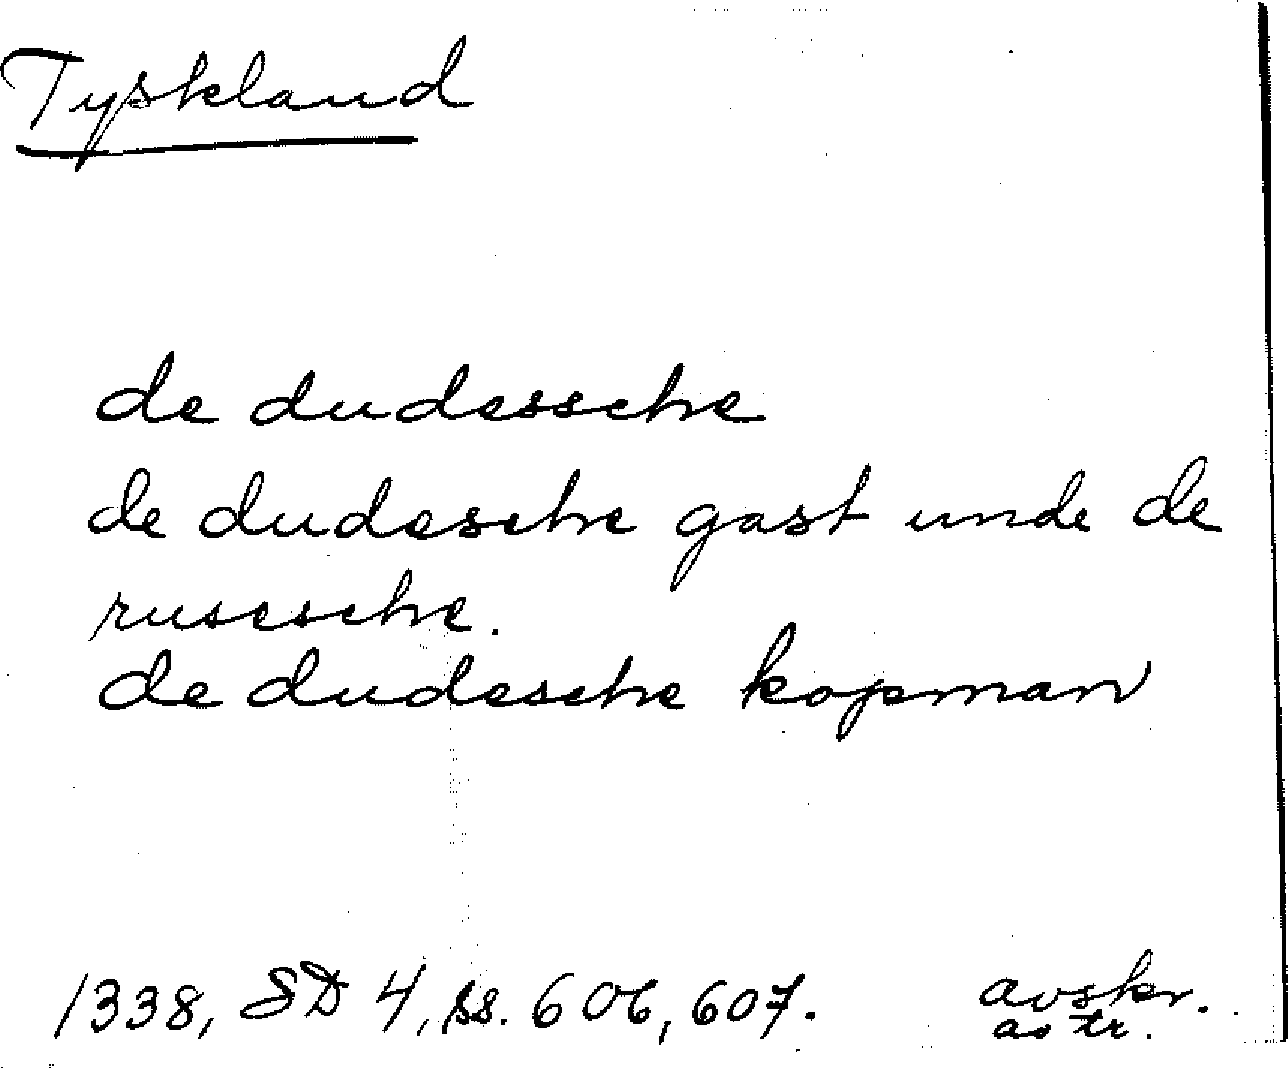 Tyskland
de dudessche
de dudesche gast unde de
rusesche.
de dudesche kopman
1338, SD 4, ss. 606, 607.
avskr.
av tr.